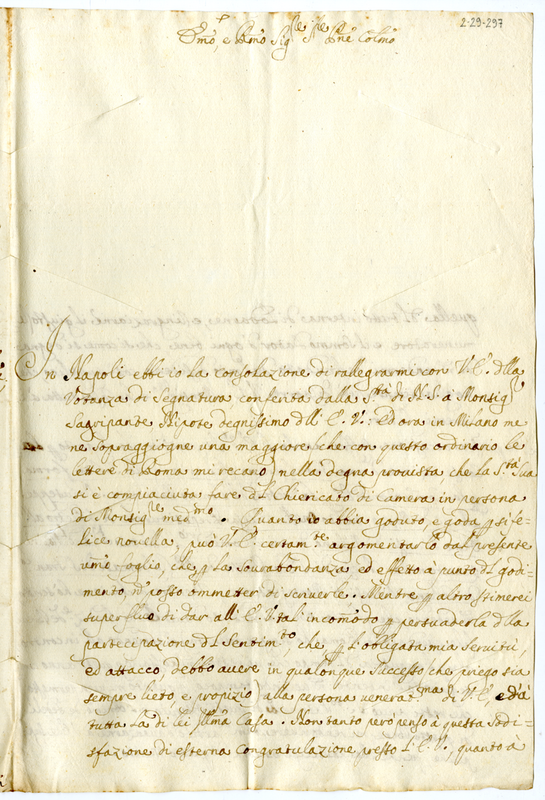 2-29-297
Emo, e Rmo Sig.re Pne Colmo
In Napoli ebbi io la consolazione di rallegrarmi con V. E. dlla
Votanza di Segnatura conferita dalla S.tà di N. S. a Monsig.r
Sagripante Nipote degnissimo dll' E. V.: Ed ora in Milano me
ne sopraggiogne una maggiore (che con questo ordinario le
lettere di Roma mi recano) nella degna provista, che la S.tà Sua
si è compiaciuta fare dl Chiericato di Camera in persona
di Monsig.re med.mo. Quanto io abbia goduto, e goda p si fe=
lice novella, può V. E. certam.te argomentarlo dal presente
umo foglio, che p la sourabondanza ed effetto à punto dl godi=
mento, n' posso ommetter di scriuerle. Mentre p altro stimerei
superfluo di dar all' E. V. tal' incomodo p persuaderla dlla
partecipazione dl sentim.to, che p l'obligata mia servitù,
ed attacco, debbo auere in qualonque successo (che priego sia
sempre lieto, e propizio) alla persona venerat.ma di V. E., e dà
tutta la di lei Illma Casa. Non tanto però penso à questa sodi=
sfazione di esterna congratulazione presso l' E. V., quanto a